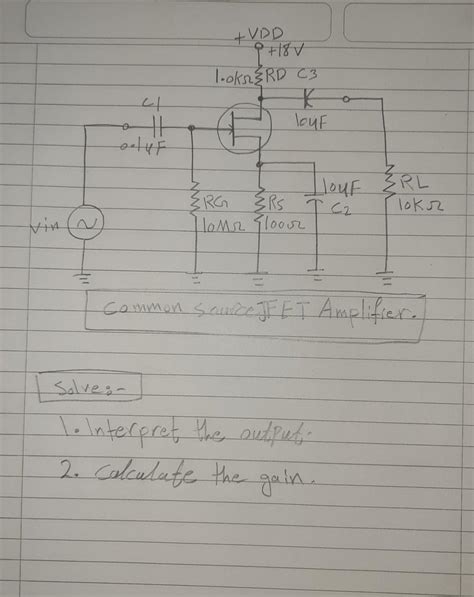 +VDD
+18V
1.0KΩ RD C3
C1
10uF
0.1uF
10uF
C2
RL
10KΩ
RG
10MΩ
Rs
100Ω
Vin
Common Source JFET Amplifier.
Solve:-
1. Interpret the output.
2. Calculate the gain.